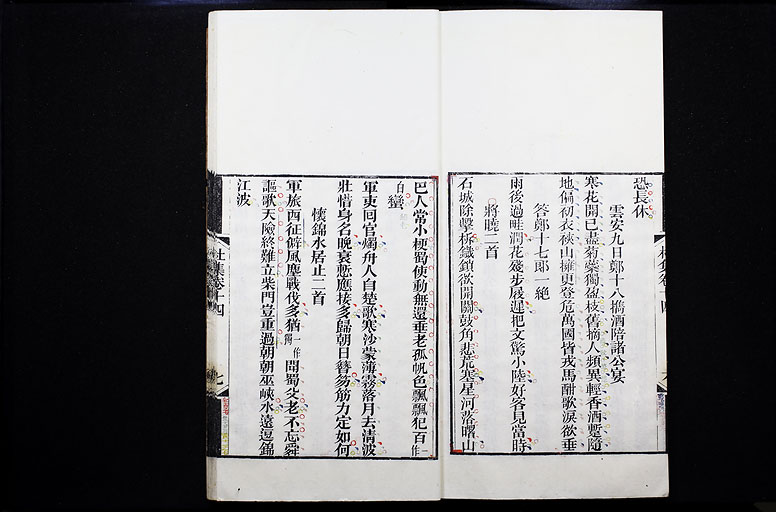 恐長休
雲安九日鄭十八攜酒陪諸公宴
寒花開已盡菊蘂獨盈枝舊摘人頻異輕香酒蹔隨
地偏初衣裌山擁更登危萬國皆戎馬酣歌淚欲垂
答鄭十七郎一絶
雨後過畦潤花殘步屐遲把文驚小陸好客見當時
將曉二首
石城除擊柝鐵鎖欲開關鼓角悲荒塞星河落曙山
巴人常小梗蜀使動無還垂老孤帆色飄飄犯百一作
白蠻
軍吏回官燭舟人自楚歌寒沙蒙薄霧落月去清波
壯惜身名晚衰慙應接多歸朝日簪笏筋力定如何
懷錦水居止二首
軍旅西征僻風塵戰伐多猶一作獨聞蜀父老不忘舜
謳歌天險終難立柴門豈重過朝朝巫峽水遠逗錦
江波
杜集卷十四
七